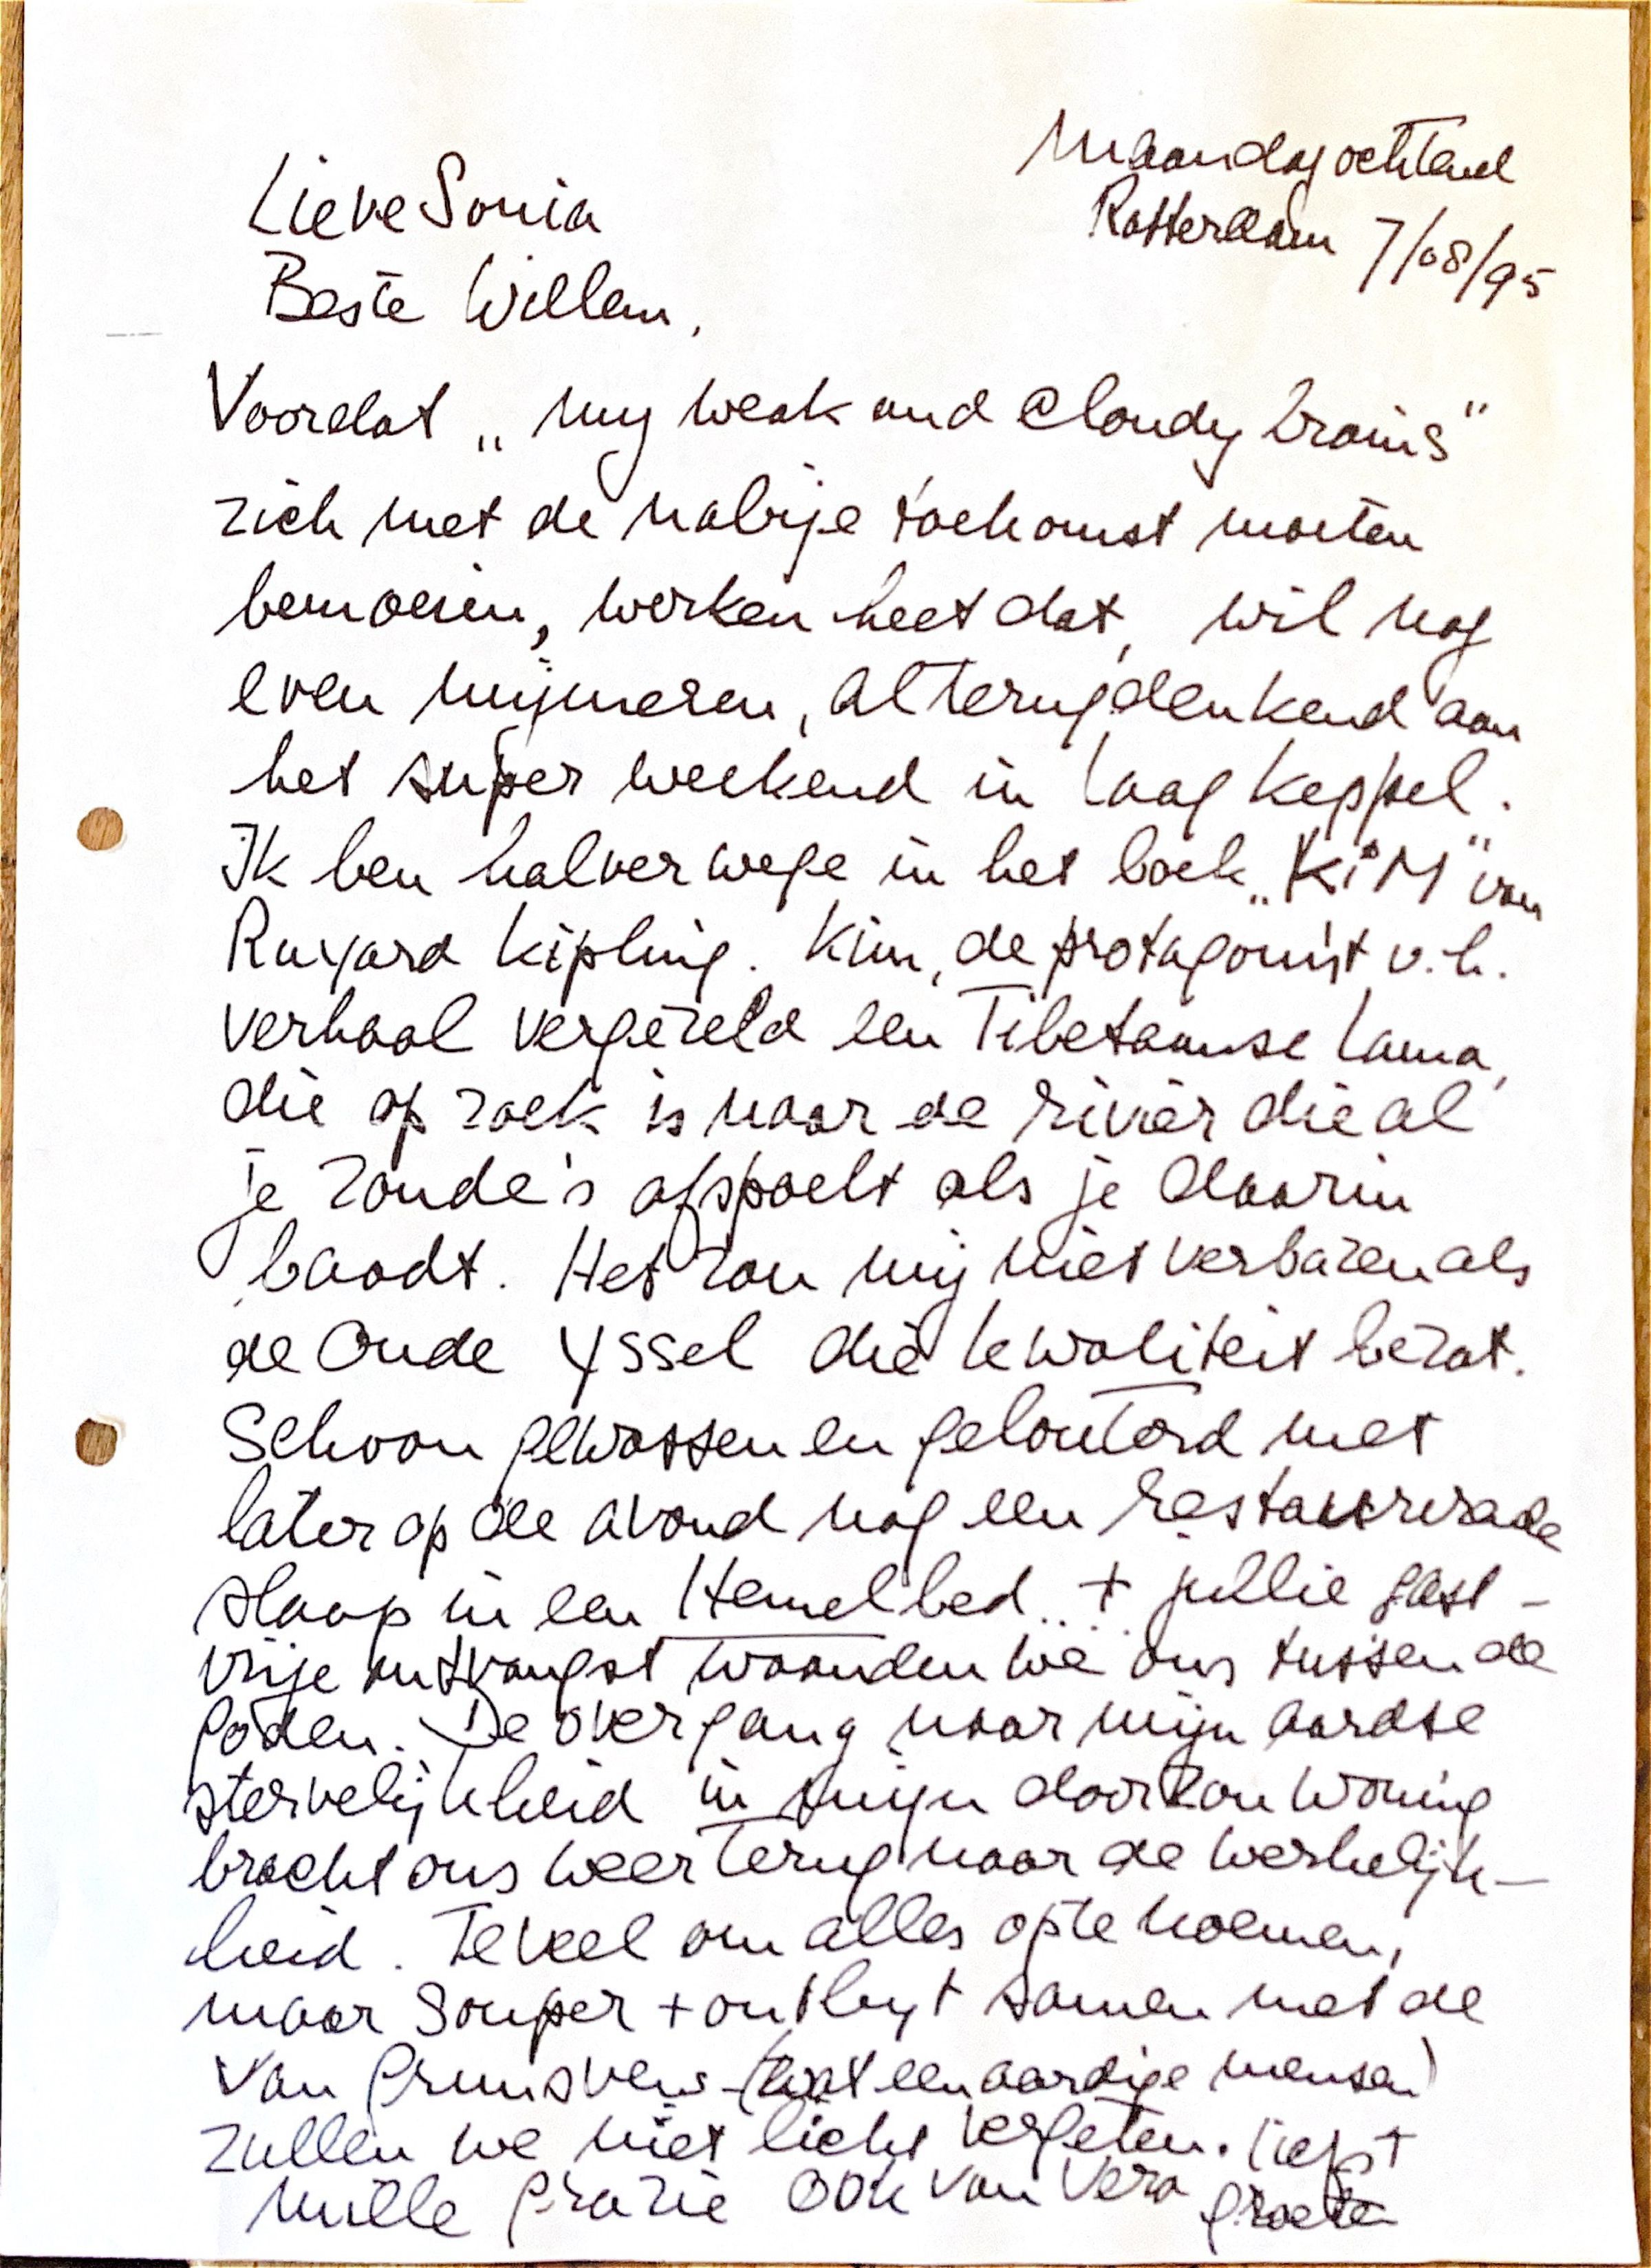 Maandagochtend
Rotterdam 7/08/95
Lieve Sonia
Beste Willem,
Voordat „my weak and cloudy brains"
zich met de nabije toekomst moeten
bemoeien, werken heet dat, wil nog
even mijmeren, al terugdenkend aan
het super weekend in Laag Keppel.
Ik ben halverwege in het boek „KiM" van
Ruyard Kipling. Kim, de protagonist v.h.
verhaal vergezeld een Tibetaanse Lama,
die op zoek is naar de rivier die al
je zonde's afspoelt als je daarin
baadt. Het zou mij niet verbazen als
de Oude Yssel die kwaliteit bezat.
Schoon gewassen en gelouterd met
later op de avond nog een
slaap in een Hemelbed.. + jullie gast-
vrije ontvangst waanden we ons tussen de
goden. De overgang naar mijn aardse
stervelijkheid in mijn doorzon woning
bracht ons weer terug naar de werkelijk-
heid. Teveel om alles op te noemen,
maar souper + ontbyt samen met de
van (wat een aardige mensen)
zullen we niet licht vergeten. liefst
mille grazie ook van Vera groeten